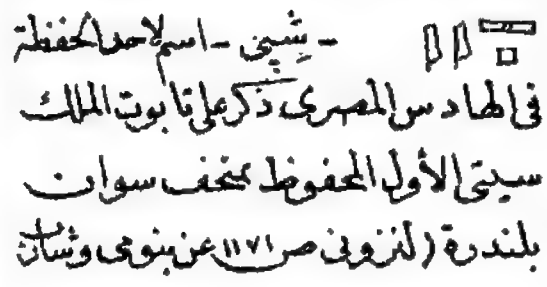 - شِبِنِي - اسم لاحد الحفظة
فى الهادس المصرى ذكر على تابوت الملك
سيتى الأول المحفوظ بمتحف سوان
بلندرة (لنزونى ص ١١٧١ عن بنومى وشارب